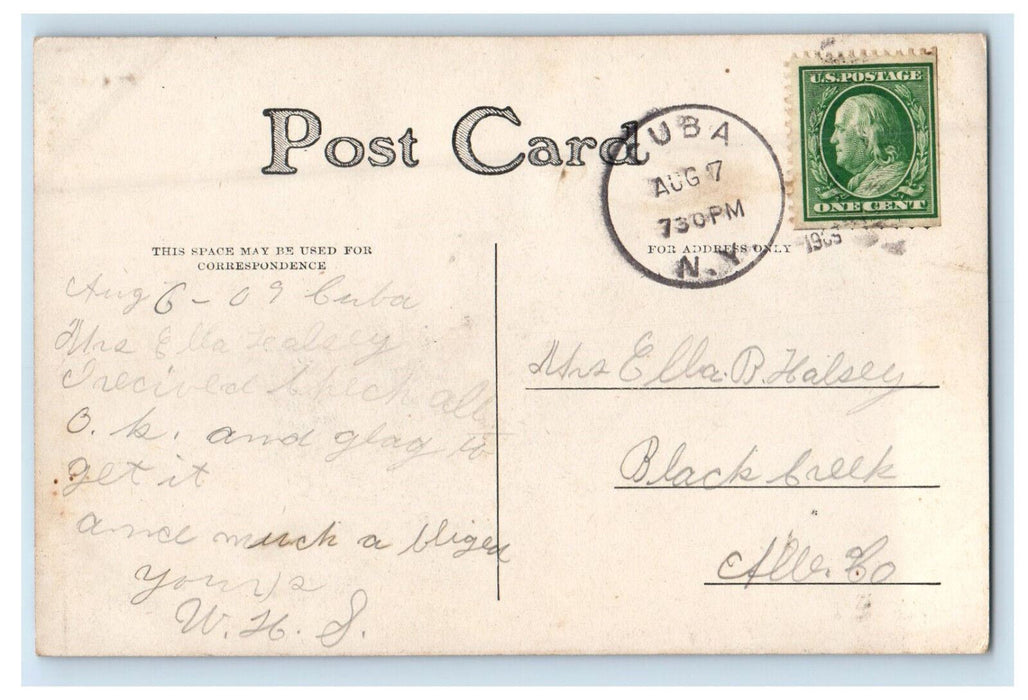 Post Card
CUBA
AUG 7
730PM
N.Y.
1909
U.S. POSTAGE
ONE CENT
THIS SPACE MAY BE USED FOR
CORRESPONDENCE
FOR ADDRESS ONLY
Aug 6-09 Cuba
Mrs Ella Halsey
I recived Check all
O. k. and glag to
get it
and much a bliged
yours
W. H. S.
Mrs Ella. B. Halsey
Black Creek
All. Co